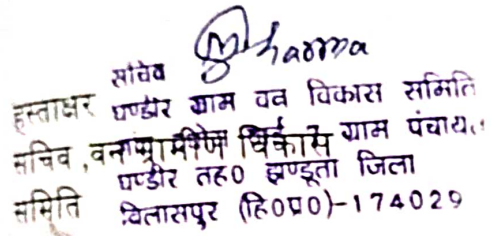 Sharma
सचिव
हस्ताक्षर घण्डीर ग्राम वन विकास समिति
सचिव ,वन ग्रामीण विकास ग्राम पंचाय..
घण्डीर तह0 झण्डूता जिला
समिति बिलासपुर (हि0प्र0)-174029